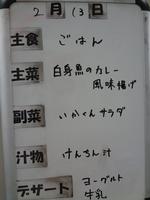 2月13日
主食 ごはん
主菜 白身魚のカレー
風味揚げ
副菜 いかくんサラダ
汁物 けんちん汁
デザート ヨーグルト
牛乳